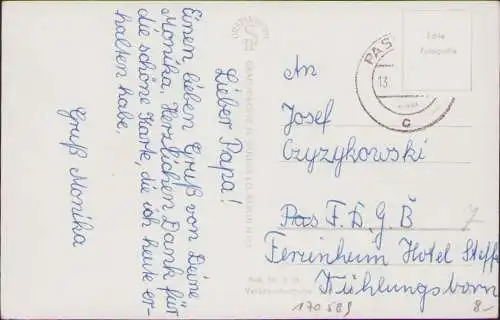 Lieber Papa!
Einen lieben Gruß von Deine
Monika. Herzlichen Dank für
die schöne Karte, die ich heute er-
halten habe.
Gruß Monika
Echte
Fotografie
PAS
13.
c
An
Josef
Czyzykowski
F.D.G.B
Ferienheim Hotel Steff
Kühlungsborn
170589
8.-